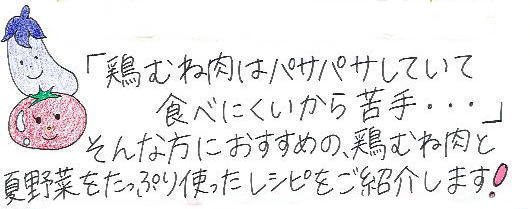 「鶏むね肉はパサパサしていて
食べにくいから苦手・・・」
そんな方におすすめの、鶏むね肉と
夏野菜をたっぷり使ったレシピをご紹介します!